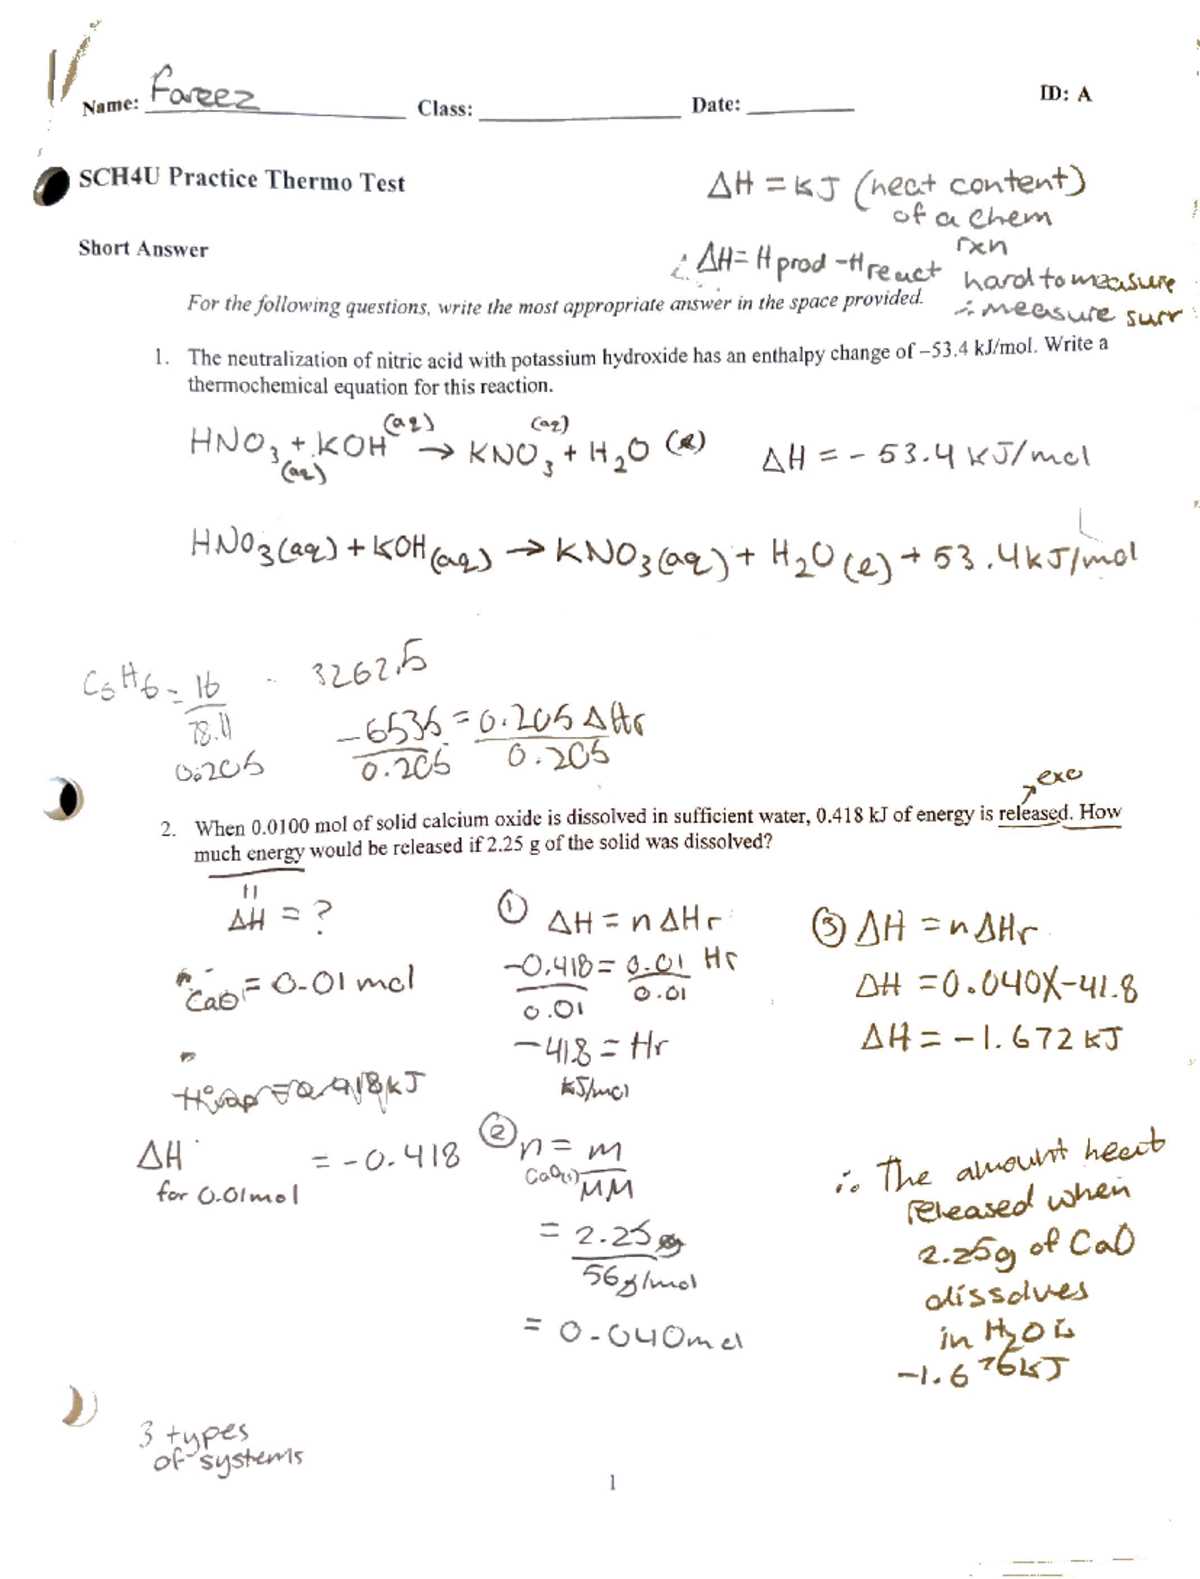 Name: Fareez Class: Date: ID: A
SCH4U Practice Thermo Test
ΔH = KJ (heat content)
of a chem
rxn
Short Answer
∴ ΔH = Hprod - Hreact
hard to measure
∴ measure surr
For the following questions, write the most appropriate answer in the space provided.
1. The neutralization of nitric acid with potassium hydroxide has an enthalpy change of –53.4 kJ/mol. Write a
thermochemical equation for this reaction.
HNO3 (aq) + KOH (aq) → KNO3 (aq) + H2O (l) ΔH = - 53.4 kJ/mol
HNO3(aq) + KOH(aq) → KNO3(aq) + H2O(l) + 53.4kJ/mol
C6H6 = 16
78.11
0.205
3262.5
-6535 = 0.205 ΔHr
0.205 0.205
exo
2. When 0.0100 mol of solid calcium oxide is dissolved in sufficient water, 0.418 kJ of energy is released. How
much energy would be released if 2.25 g of the solid was dissolved?
ΔH = ?
n CaO = 0.01 mol
n
ΔH = -0.418
for 0.01mol
① ΔH = nΔHr
-0.418 = 0.01 Hr
0.01 0.01
-41.8 = Hr
kJ/mol
② n = m
CaO(s) MM
= 2.25g
56g/mol
= 0.040mol
③ ΔH = nΔHr
ΔH = 0.040X-41.8
ΔH = -1.672 kJ
∴ The amount heat
released when
2.25g of CaO
dissolves
in H2O is
-1.676kJ
3 types
of systems
1